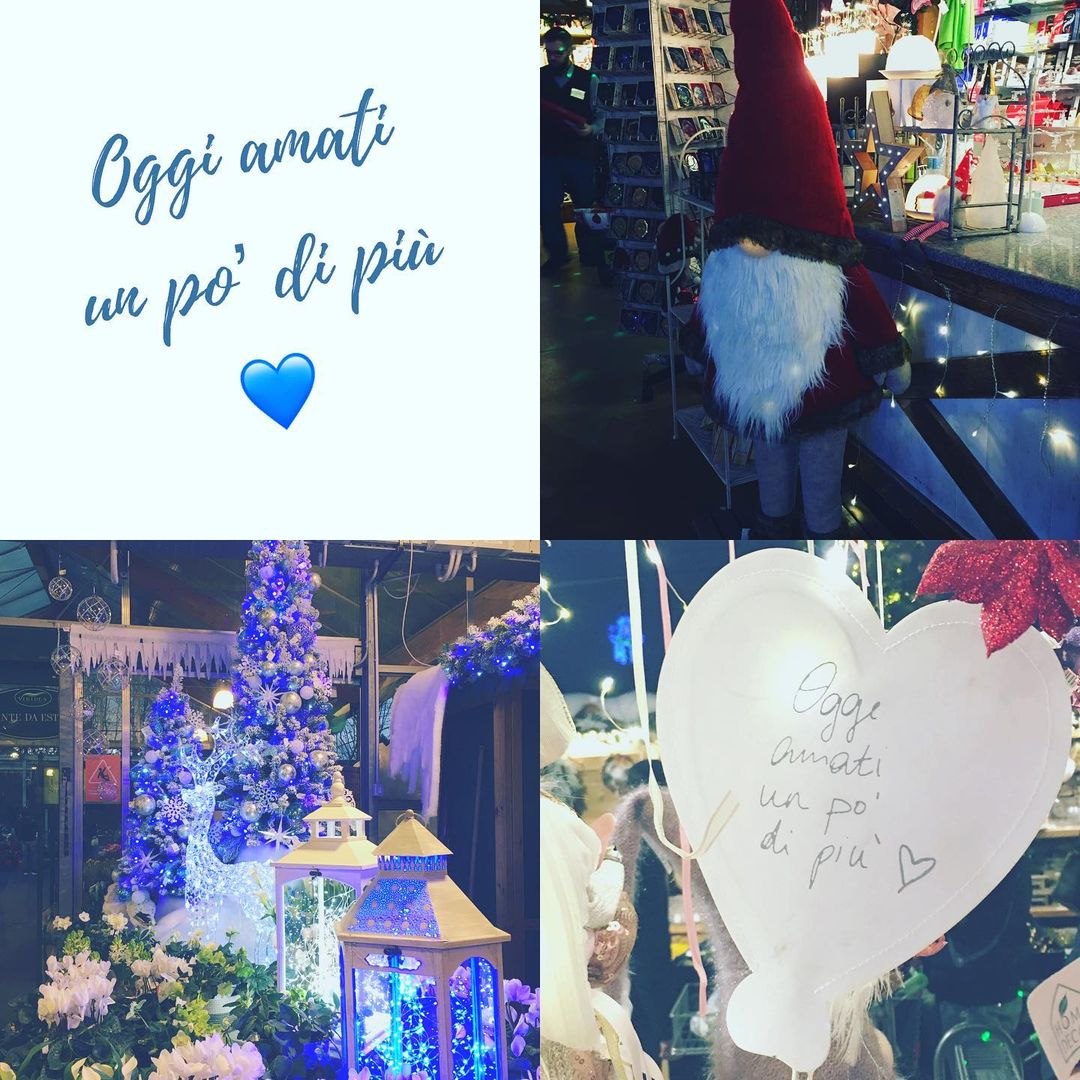 Oggi amati
un po' di più
NTE DA EST
Oggi
amati
un po'
di più
HOM
DEC